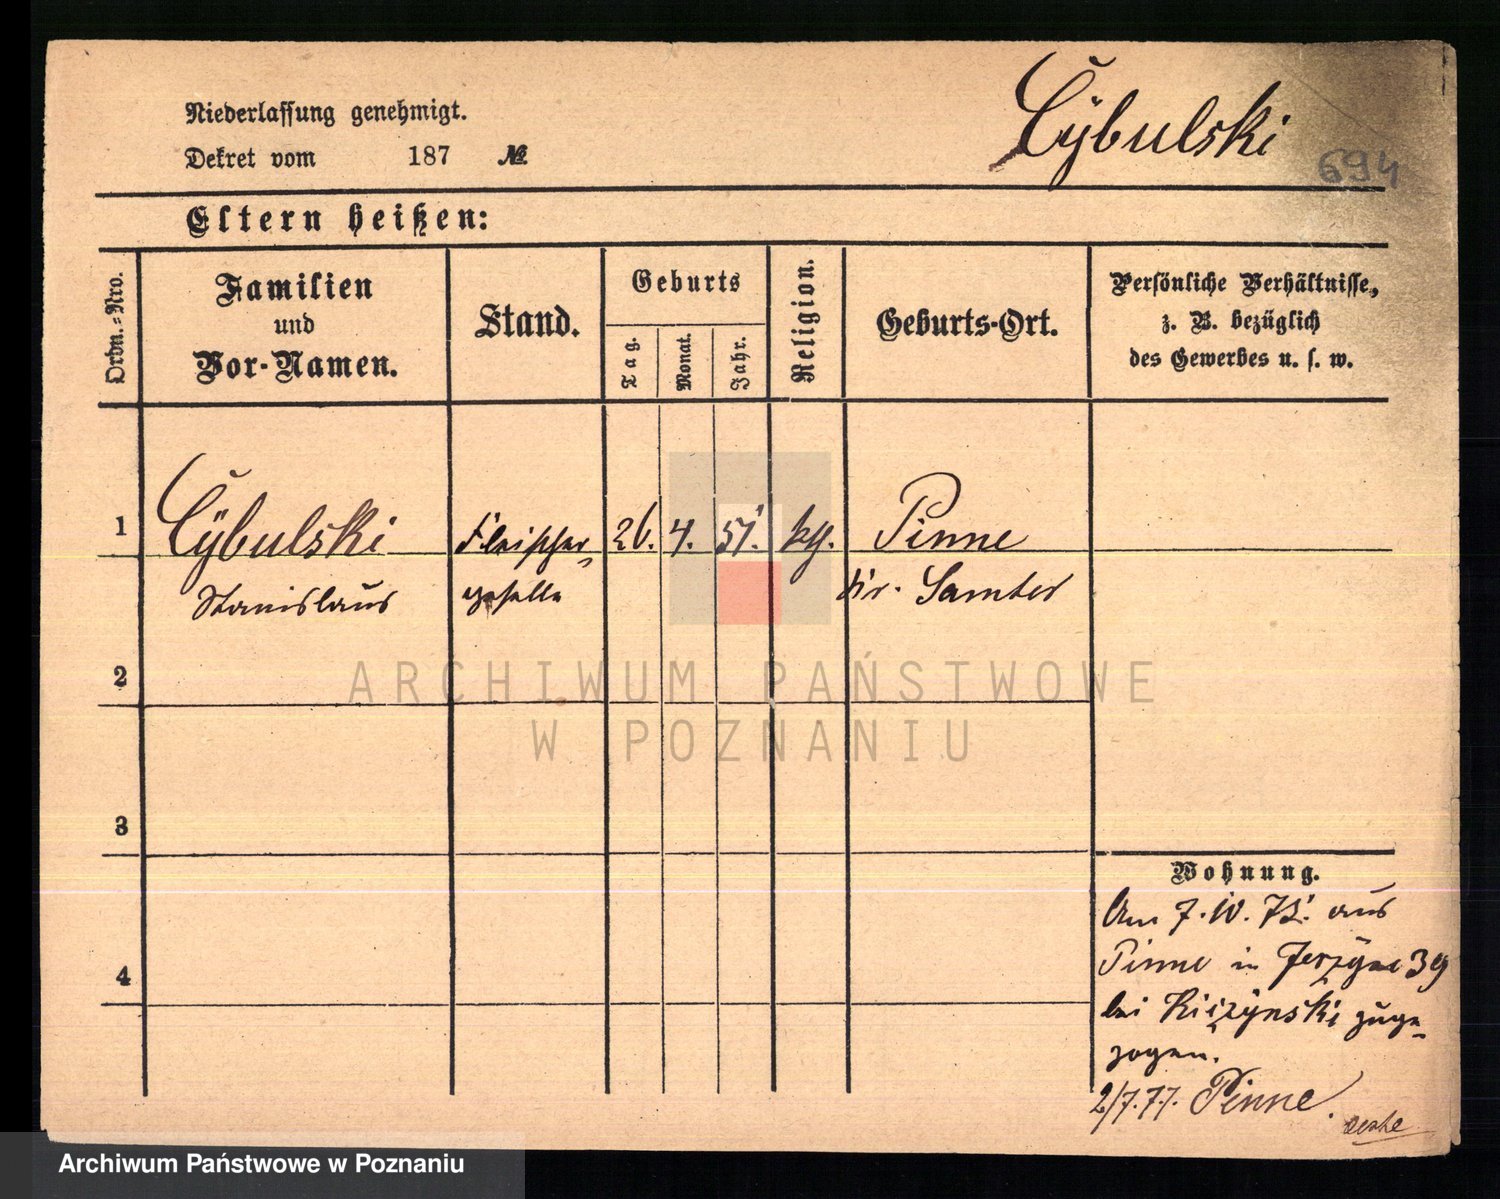 Niederlassung genehmigt.
Dekret vom 187 №
Cybulski
694
Eltern heißen:
Ordn.-Nro.
Familien
und
Vor-Namen.
Stand.
Geburts
Tag.
Monat.
Jahr.
Religion.
Geburts-Ort.
Persönliche Verhältnisse,
z. B. bezüglich
des Gewerbes u. s. w.
1 Cybulski Fleischer- 26. 4. 51. Pinne
Stanislaus geselle Kr. Samter
2
ARCHIWUM PAŃSTWOWE
W POZNANIU
3
4
Wohnung.
Am 7. aus
Pinne in 39
bei zuge-
zogen.
2/7.77. Pinne.
Archiwum Państwowe w Poznaniu